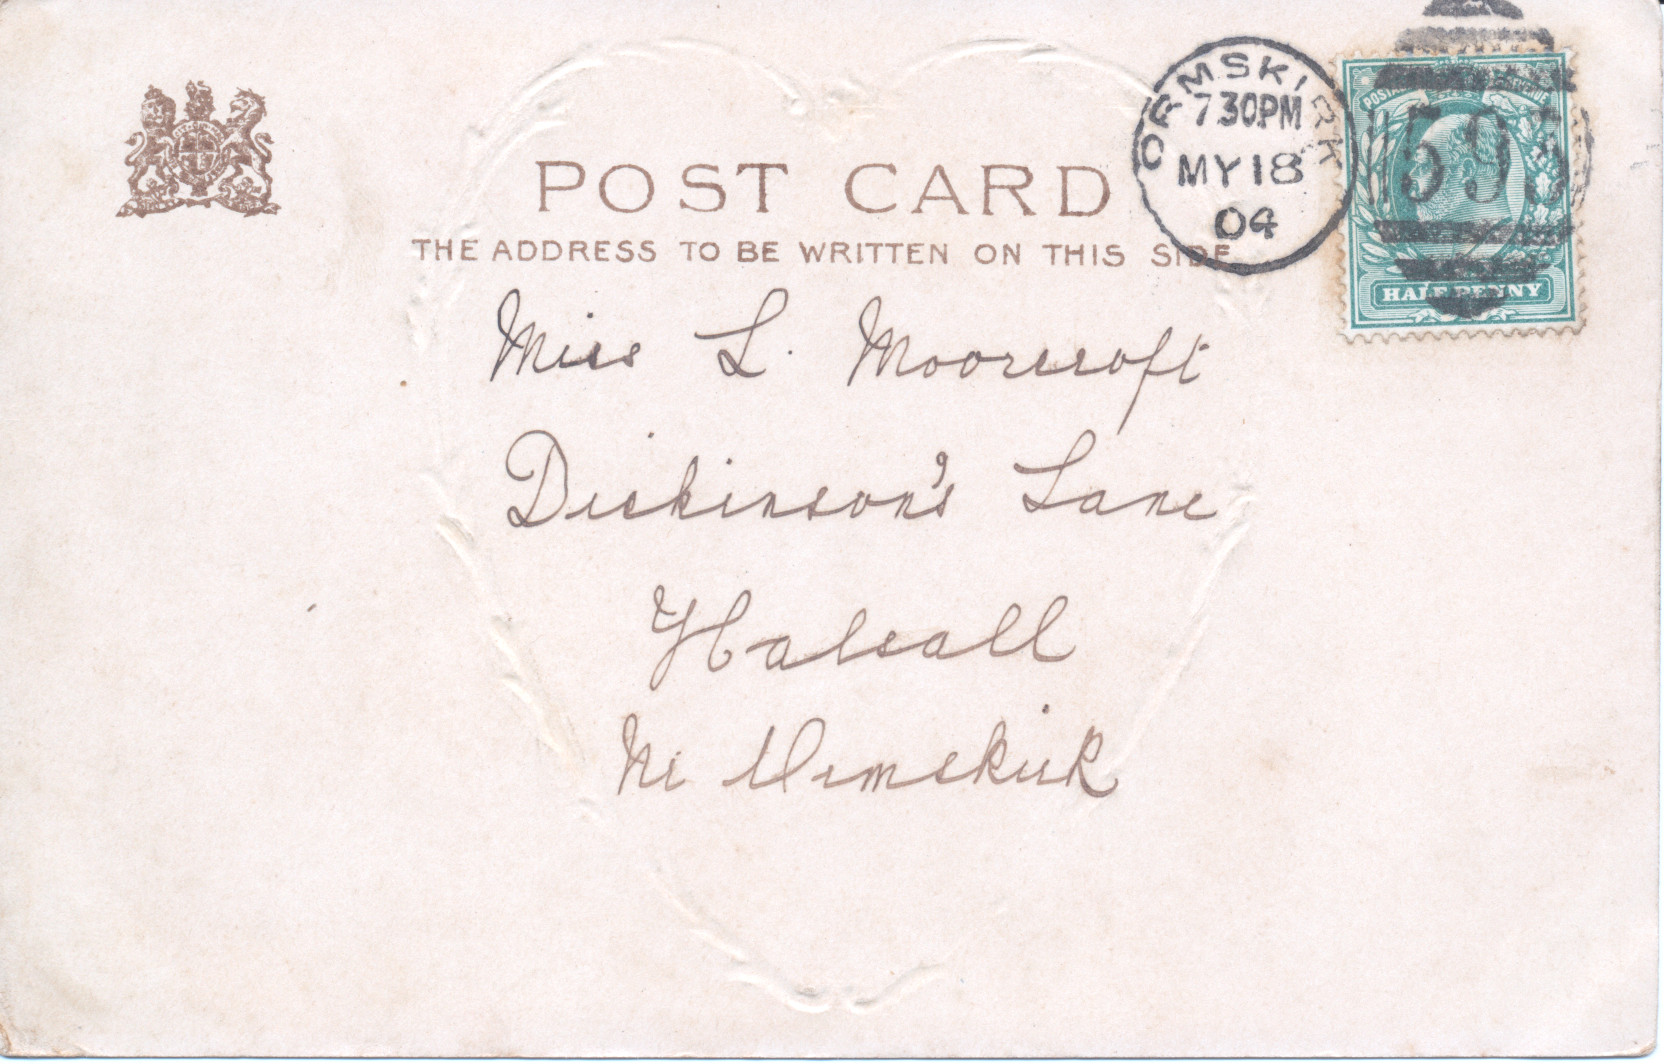 POST CARD
THE ADDRESS TO BE WRITTEN ON THIS SIDE
ORMSKIRK
7 30PM
MY 18
04
POSTAGE REVENUE
593
HALF PENNY
Miss L. Moorcroft
Dickinson's Lane
Halsall
Nr Ormskirk